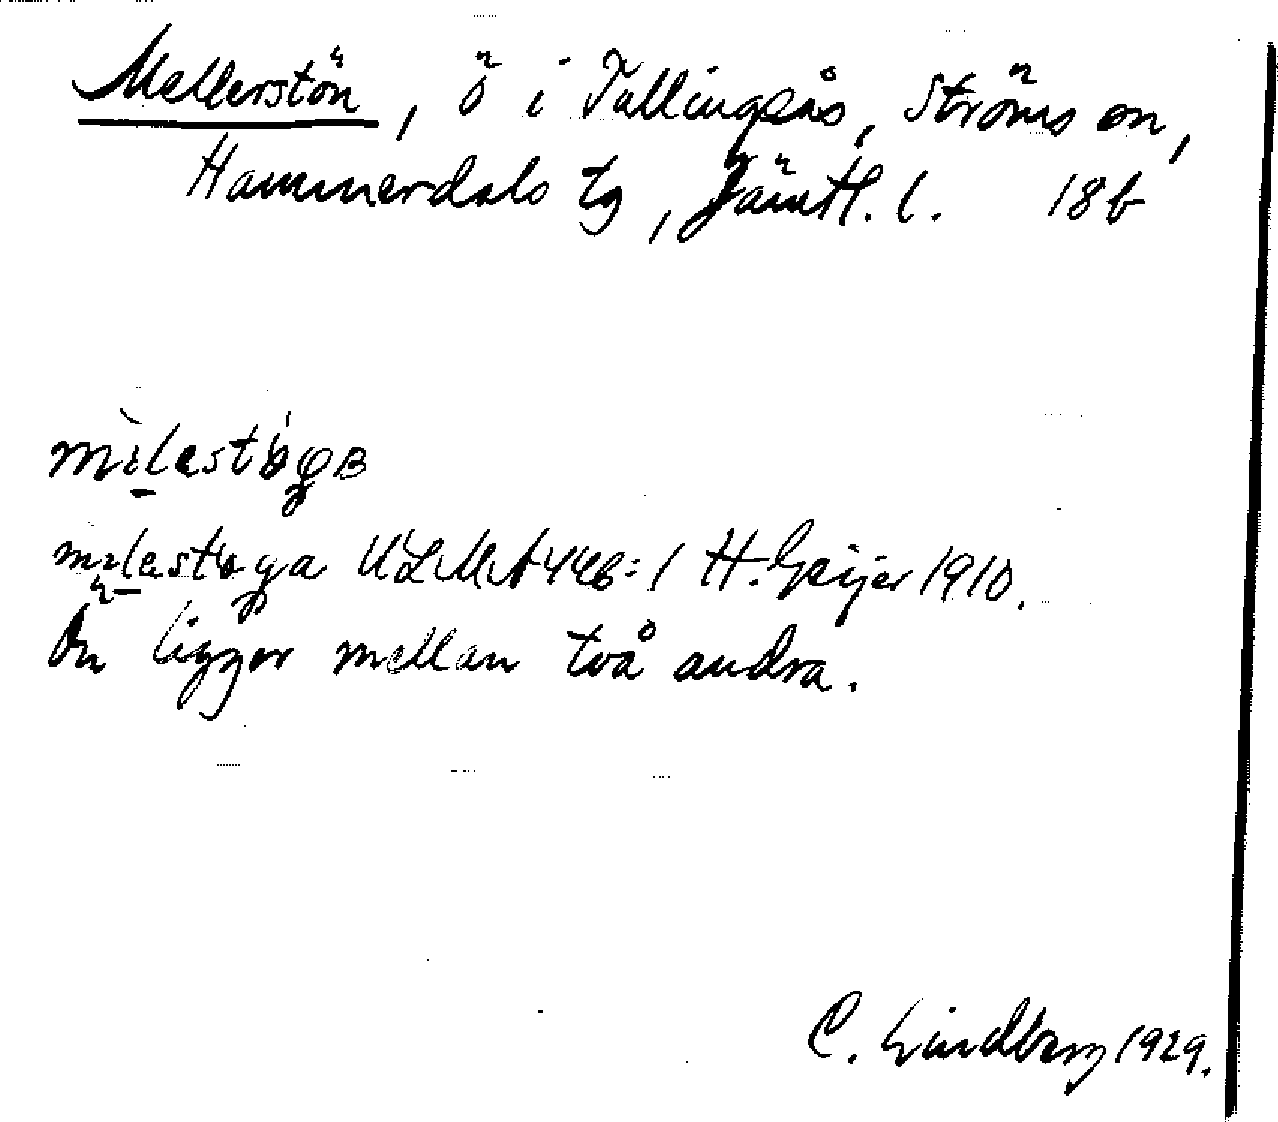 Mellerstön, ö i Tullingsås, Ströms sn,
Hammerdals tg, Jämtl. l. 18b
mìlestö́ga
milestöga ULMA 446:1 H. Geijer 1910.
Ön ligger mellan två andra.
C. Lindberg 1929.